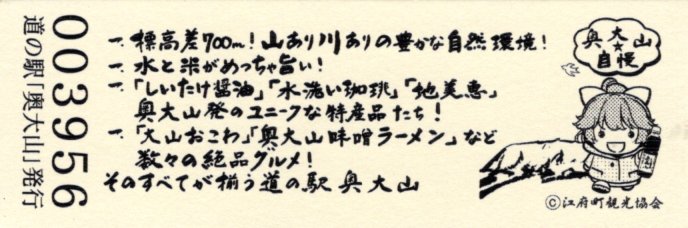 003956
道の駅「奥大山」発行
一、標高差700m！山あり川ありの豊かな自然環境！
一、水と米がめっちゃ旨い！
一、「しいたけ醤油」「水洗い珈琲」「地美恵」
奥大山発のユニークな特産品たち！
一、「大山おこわ」「奥大山味噌ラーメン」など
数々の絶品グルメ！
そのすべてが揃う道の駅奥大山
奥大山
★
自慢
©江府町観光協会